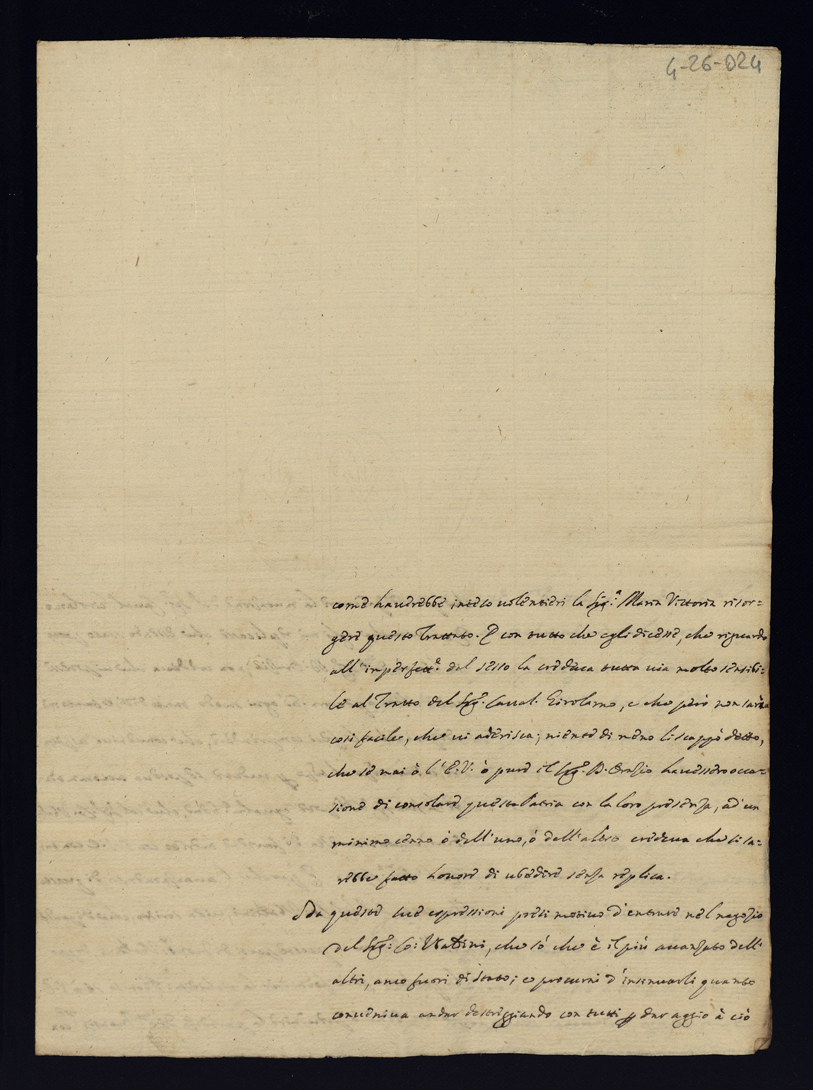 4-26-024
come haverebbe inteso volentieri la Sig.ª Maria Vittoria risor=
gere questo Trattato. E con tutto che egli dicesse, che riguardo
all'imperfett.ᵉ del sesso la credeva tutta via molto sensibi-
le al Tratto del Sig.ʳ Caval.ʳ Girolamo, e che però non saria
così facile, che vi aderisca; niente di meno li scappò detto,
che se mai ò l'E.V. ò pure il Sig.ʳ D. Orazio havessero occa=
sione di consolare questa Patria con la loro presenza, ad un
minimo cenno ò dell'uno, ò dell'altro credeva che si sa=
rebbe fatto honore di ubedire senza replica.
Da queste sue espressioni presi motivo d'entrare nel negozio
del Sig.ʳ Co: che sò che è il più avanzato dell'
altri, anco fuori di ; e procurai d'insinuarli quanto
conveniva andar destreggiando con tutti p dar aggio à ciò